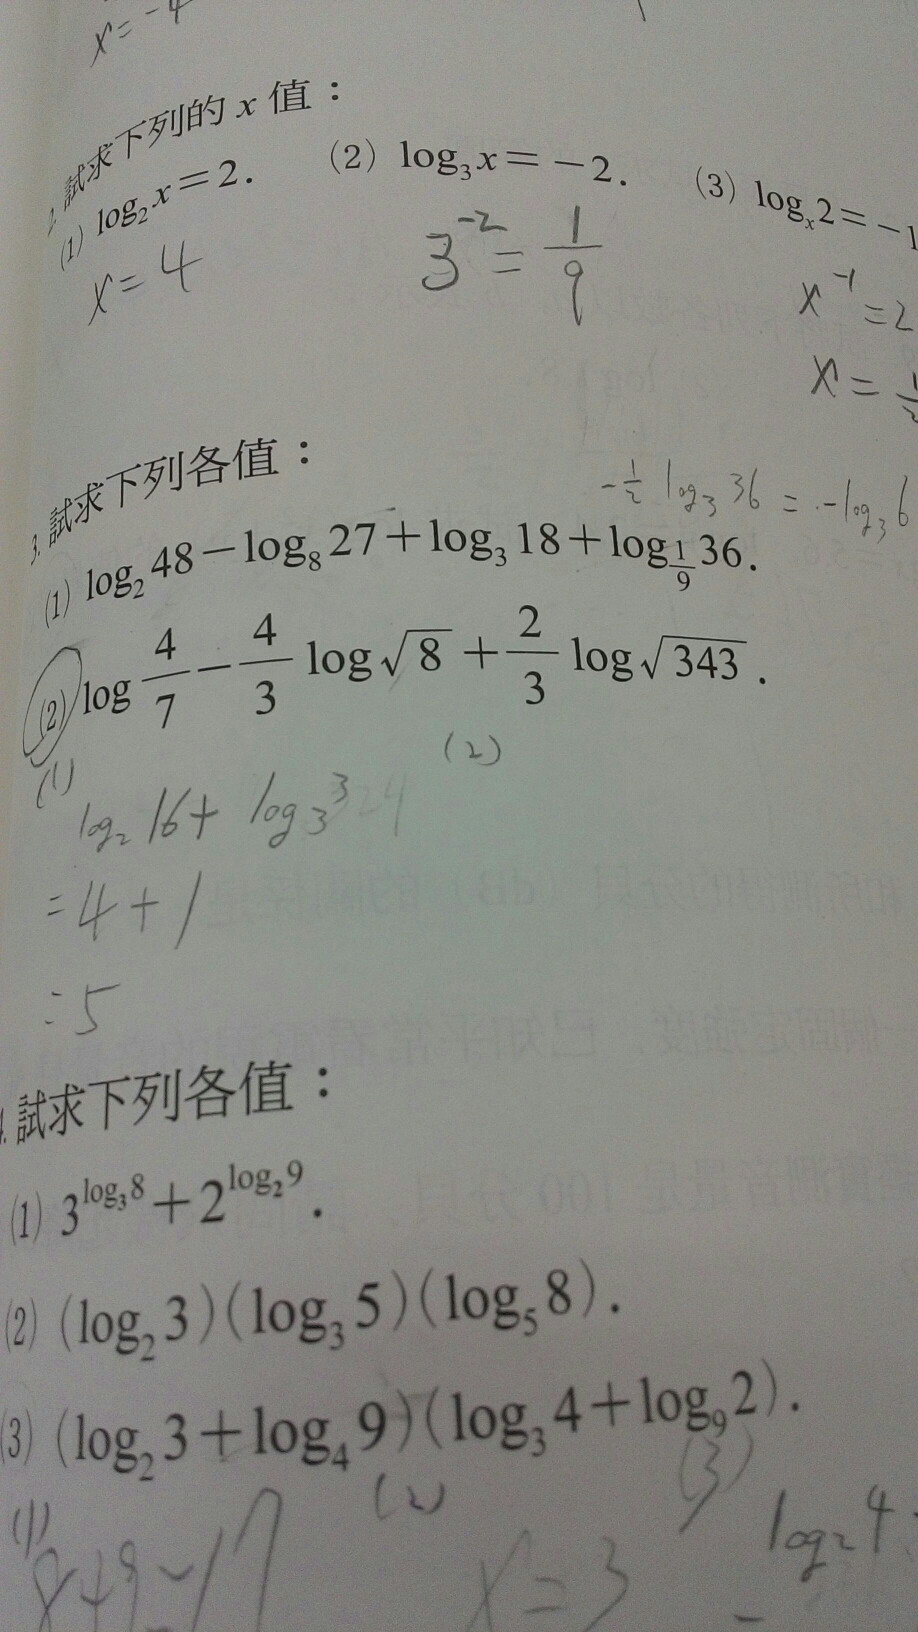 x=-4
2. 試求下列的 x 值：
(1) log₂x=2.  (2) log₃x=-2.  (3) logₓ2=-1
x=4  3⁻²=1/9  x⁻¹=2
x=
3. 試求下列各值：
-1/2 log₃36 = -log₃6
(1) log₂48-log₈27+log₃18+log_{1/9}36.
(2) log 4/7 - 4/3 log√8 + 2/3 log√343.
(1)  (2)
log₂16+ log₃3
=4+1
=5
試求下列各值：
(1) 3^{log₃8}+2^{log₂9}.
(2) (log₂3)(log₃5)(log₅8).
(3) (log₂3+log₄9)(log₃4+log₉2).
(1)  (2)  (3)
8+9=17  x=3  log₂4